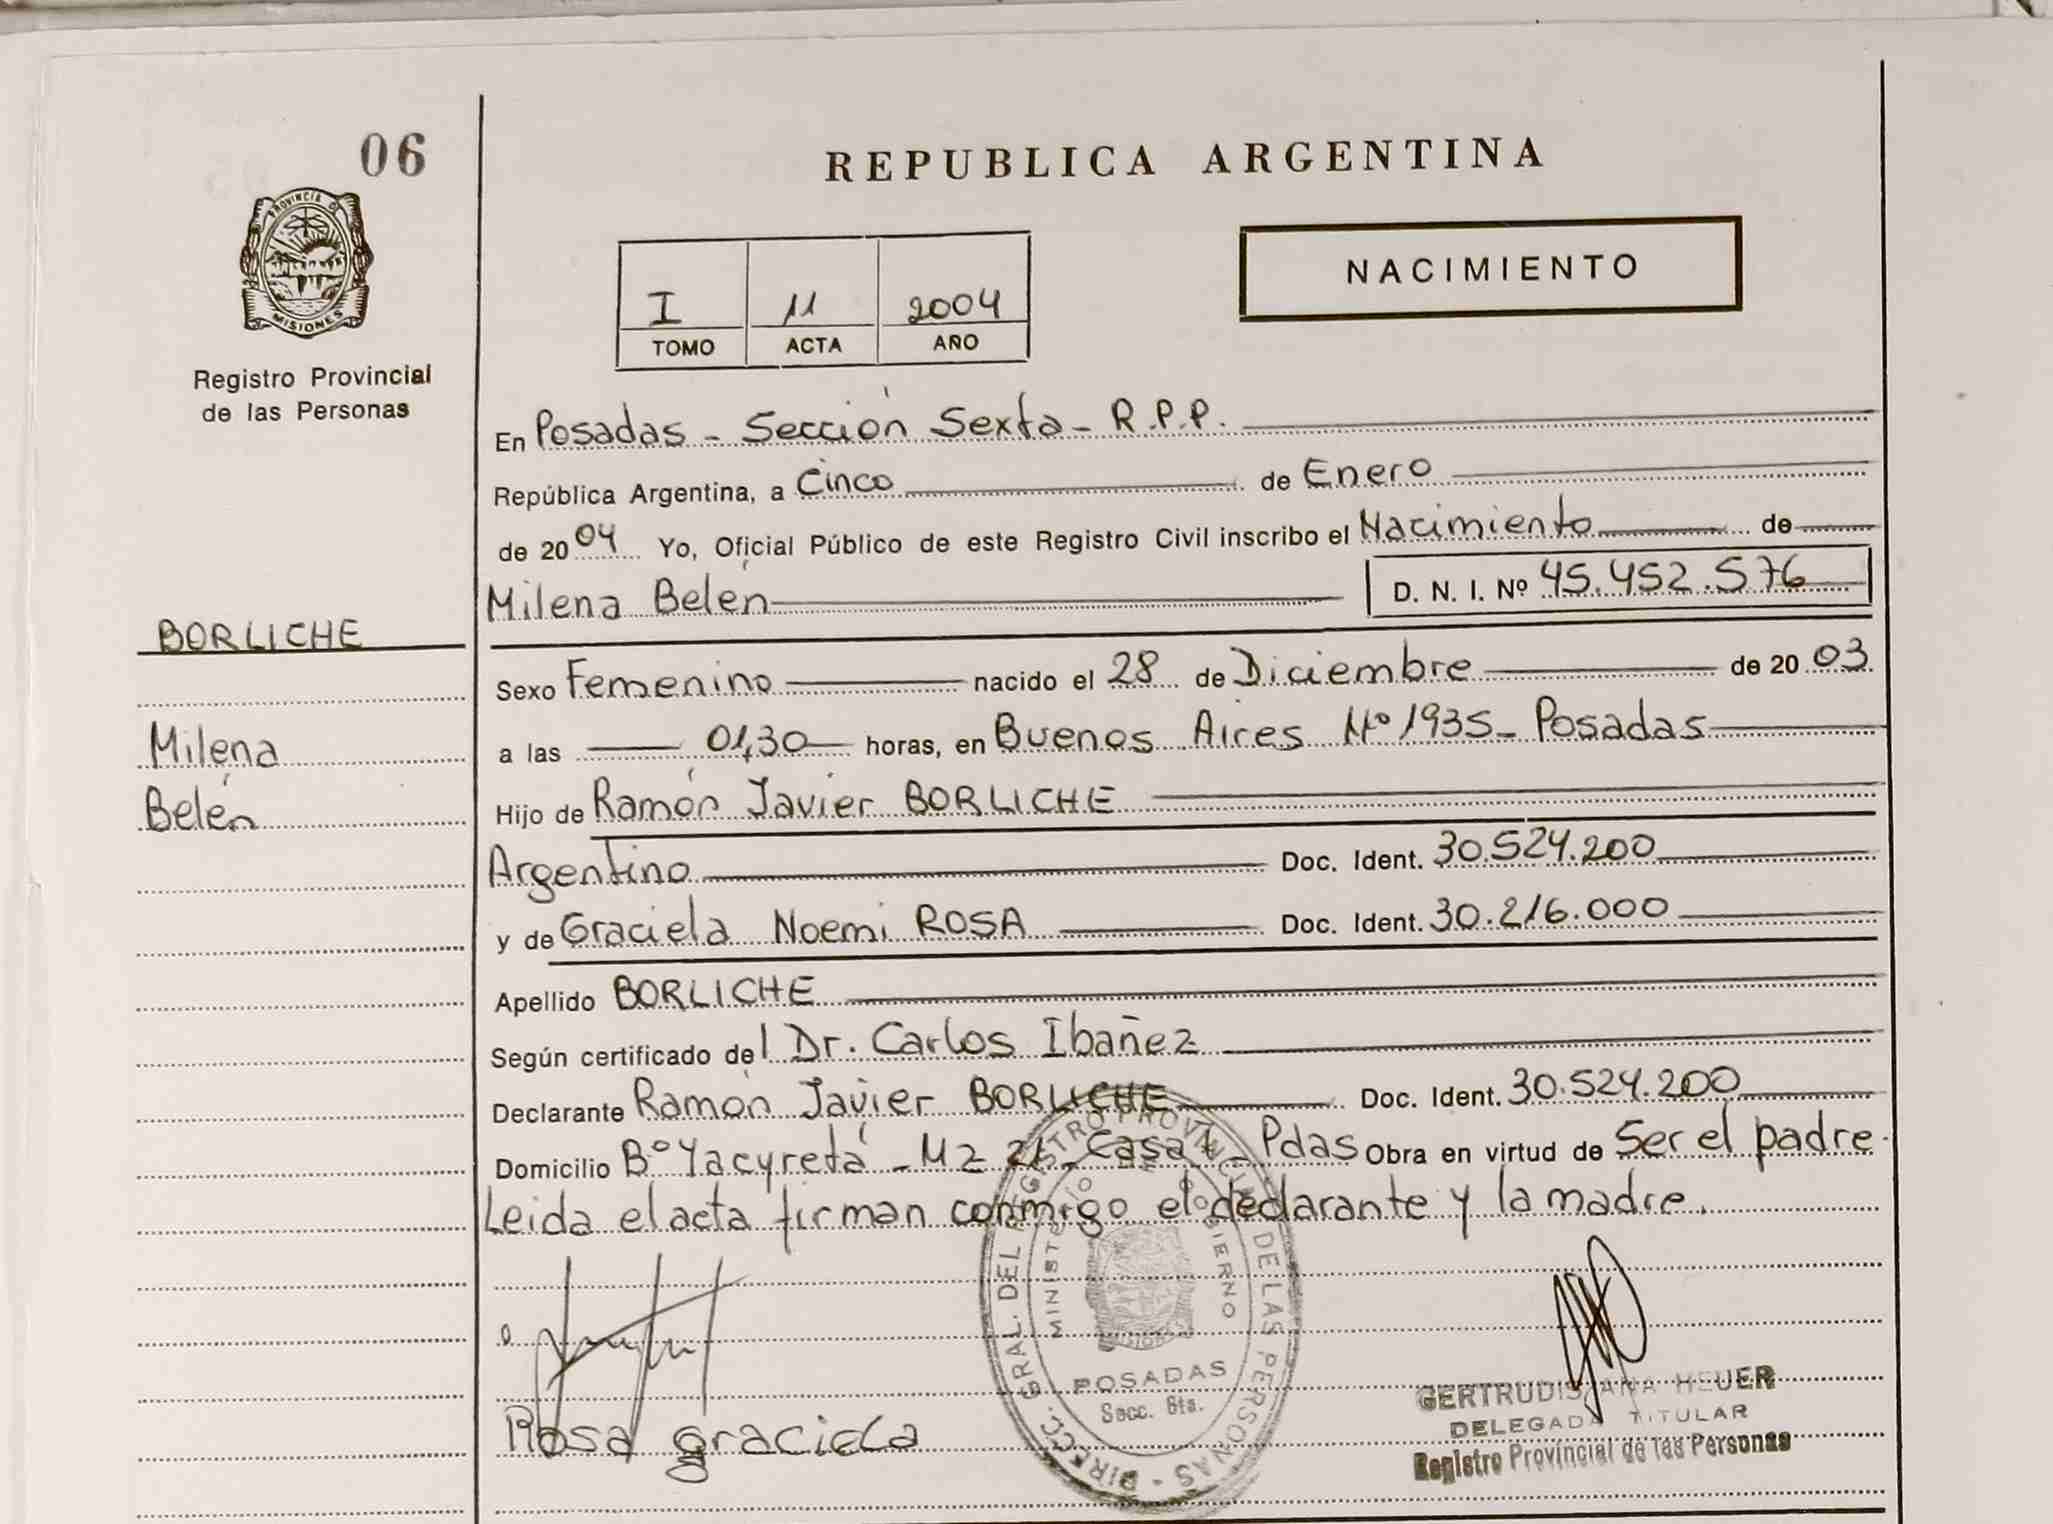 06
REPUBLICA ARGENTINA
PROVINCIA DE
MISIONES
Registro Provincial
de las Personas
I 11 2004
TOMO ACTA AÑO
NACIMIENTO
En Posadas - Sección Sexta - R.P.P.
República Argentina, a Cinco de Enero
de 2004 Yo, Oficial Público de este Registro Civil inscribo el Nacimiento de
Milena Belén D. N. I. Nº 45.452.576
BORLICHE
Milena
Belén
Sexo Femenino nacido el 28 de Diciembre de 2003
a las 01,30 horas, en Buenos Aires Nº 1935 - Posadas
Hijo de Ramón Javier BORLICHE
Argentino Doc. Ident. 30.524.200
y de Graciela Noemi ROSA Doc. Ident. 30.216.000
Apellido BORLICHE
Según certificado del Dr. Carlos Ibañez
Declarante Ramón Javier BORLICHE Doc. Ident. 30.524.200
Domicilio Bº Yacyretá - Mz Casa Pdas Obra en virtud de Ser el padre.
Leida el acta firman conmigo el declarante y la madre.
DIRECC. GRAL. DEL REGISTRO PROVINCIAL DE LAS PERSONAS -
MINISTERIO DE GOBIERNO
POSADAS
Secc. 6ta.
Rosa graciela
GERTRUDIS ANA HEUER
DELEGADA TITULAR
Registro Provincial de las Personas